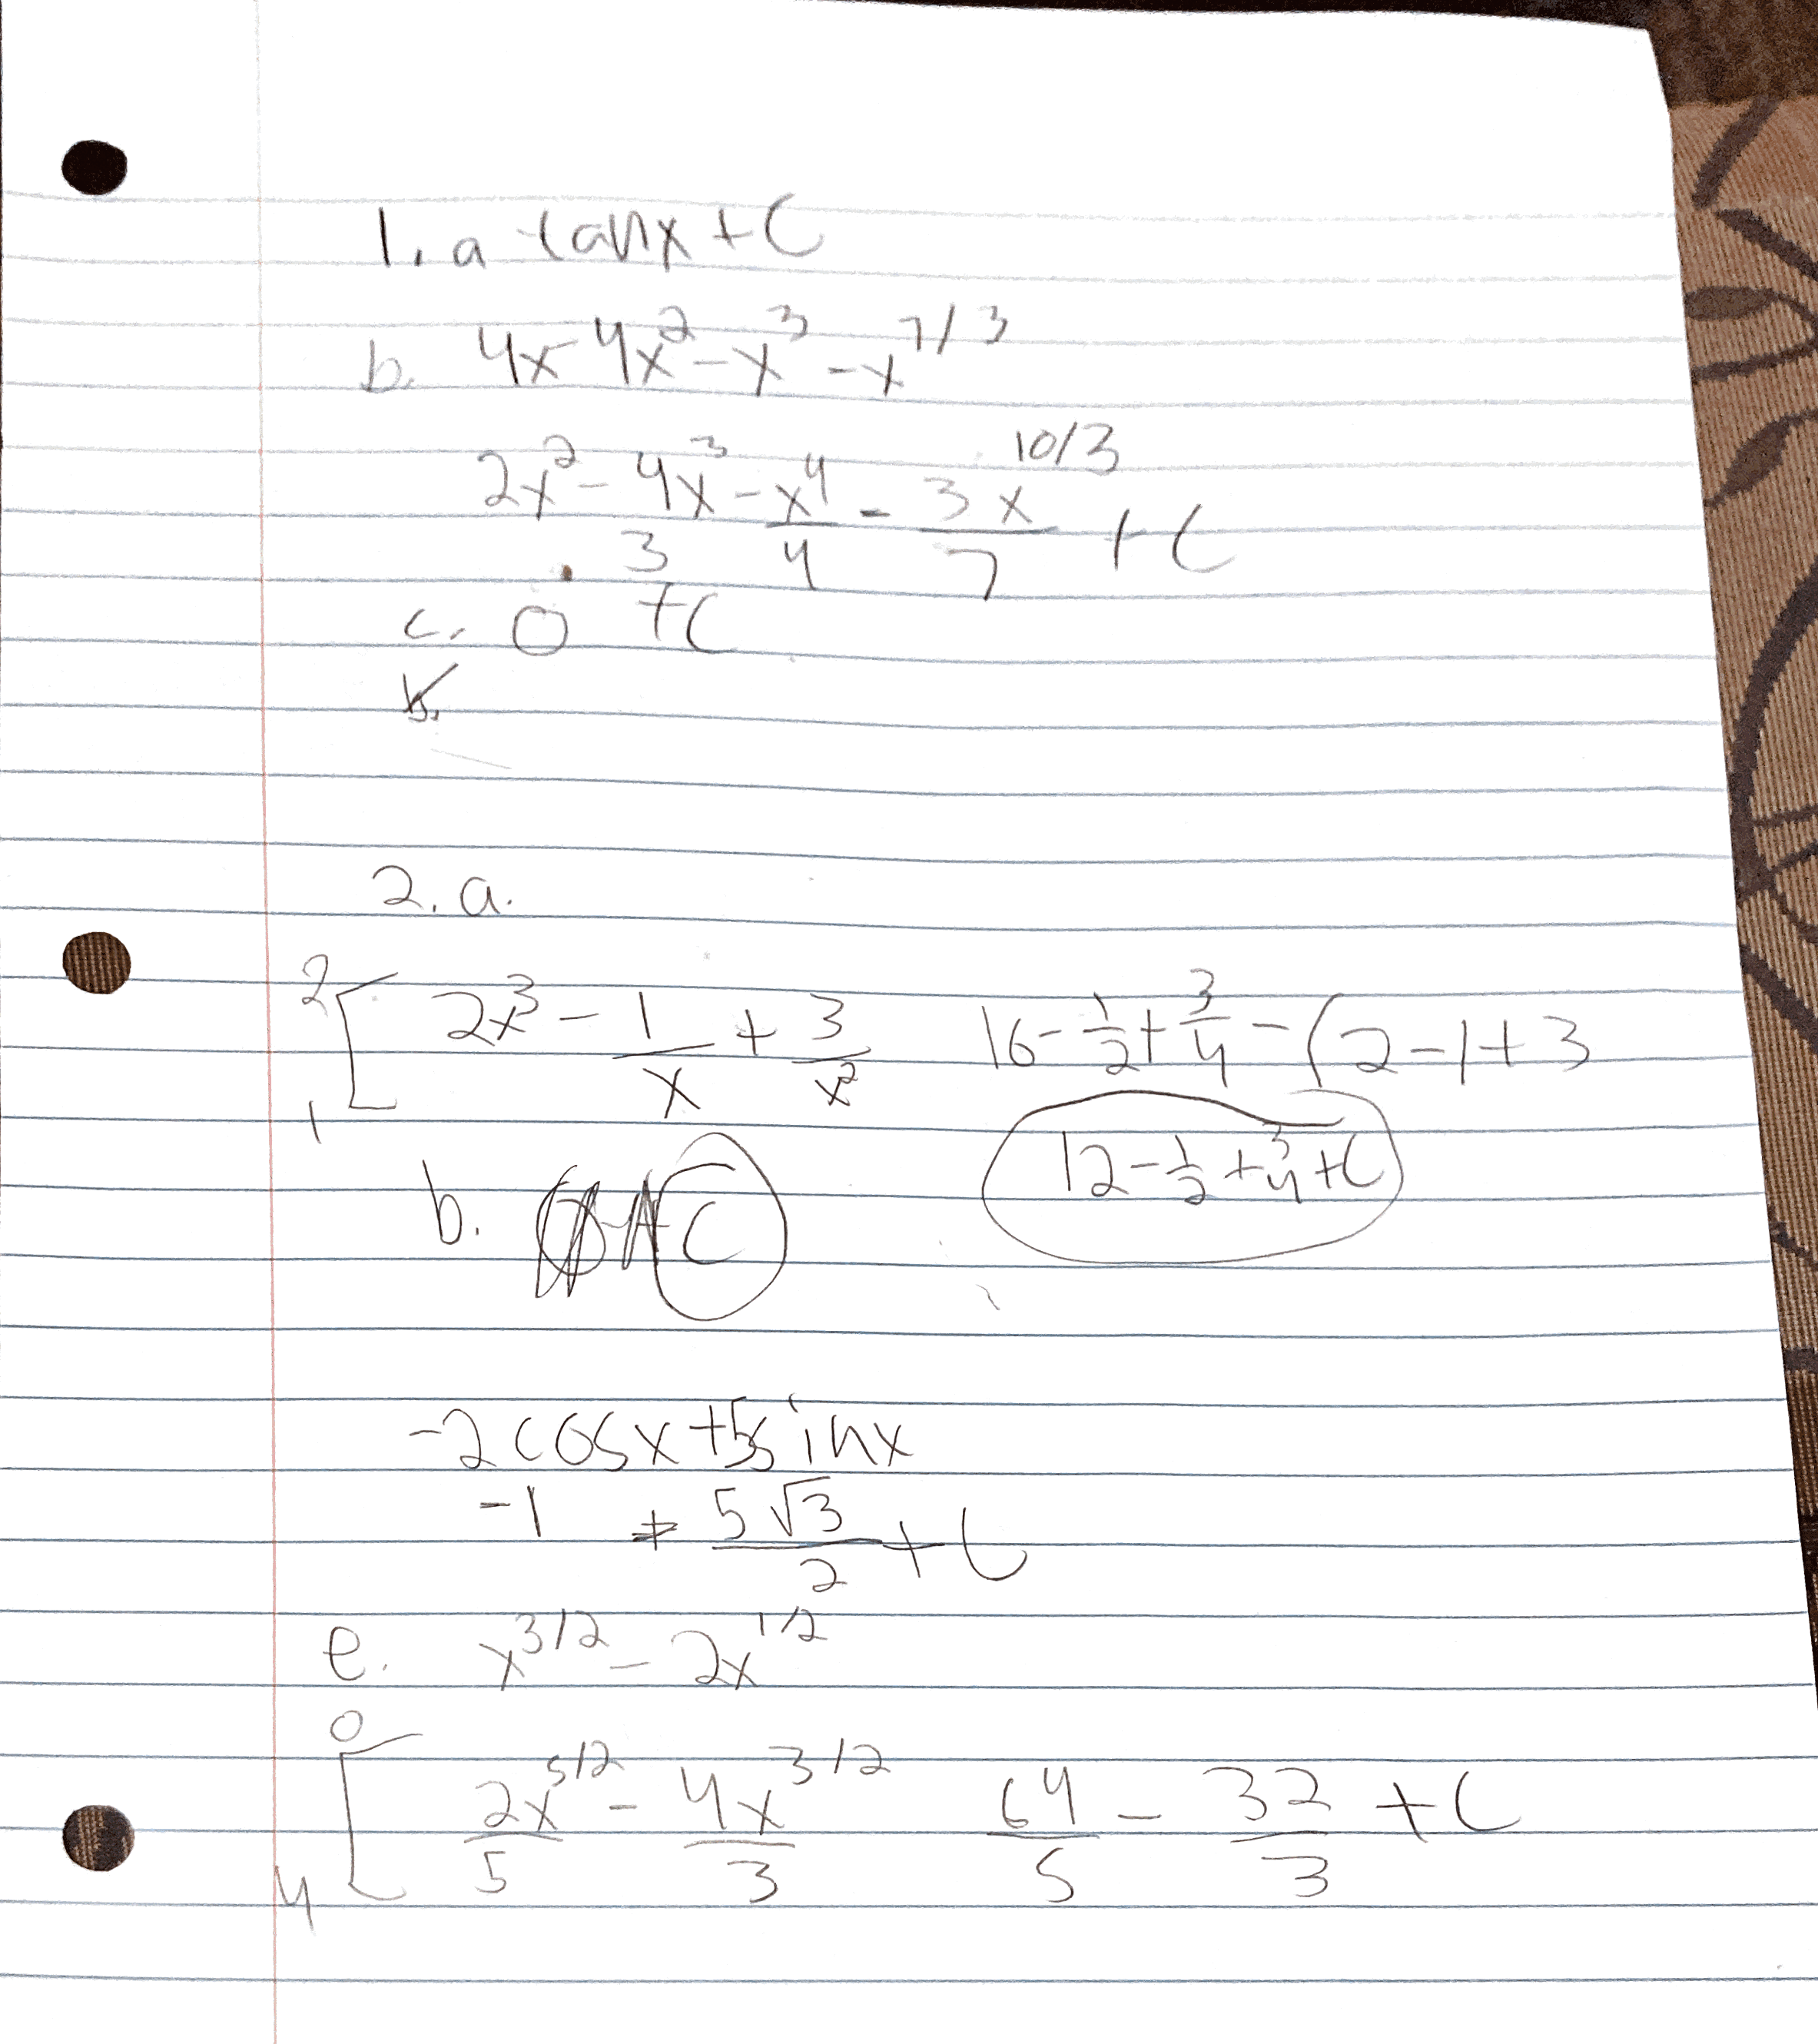 1. a tanx + C
b. 4x - 4x² - x³ - x^7/3
2x² - 4x³/3 - x⁴/4 - 3x^10/3/7 + C
c. 0 + C
2. a.
2 [ 2x³ - 1/x + 3/x² 16 - 1/2 + 3/4 - (2 - 1 + 3
1
12 - 1/2 + 3/4 + C
b. C
-2cosx + 5sinx
-1 + 5√3/2 + C
e. x^3/2 - 2x^1/2
0
[ 2x^5/2/5 - 4x^3/2/3 64/5 - 32/3 + C
4